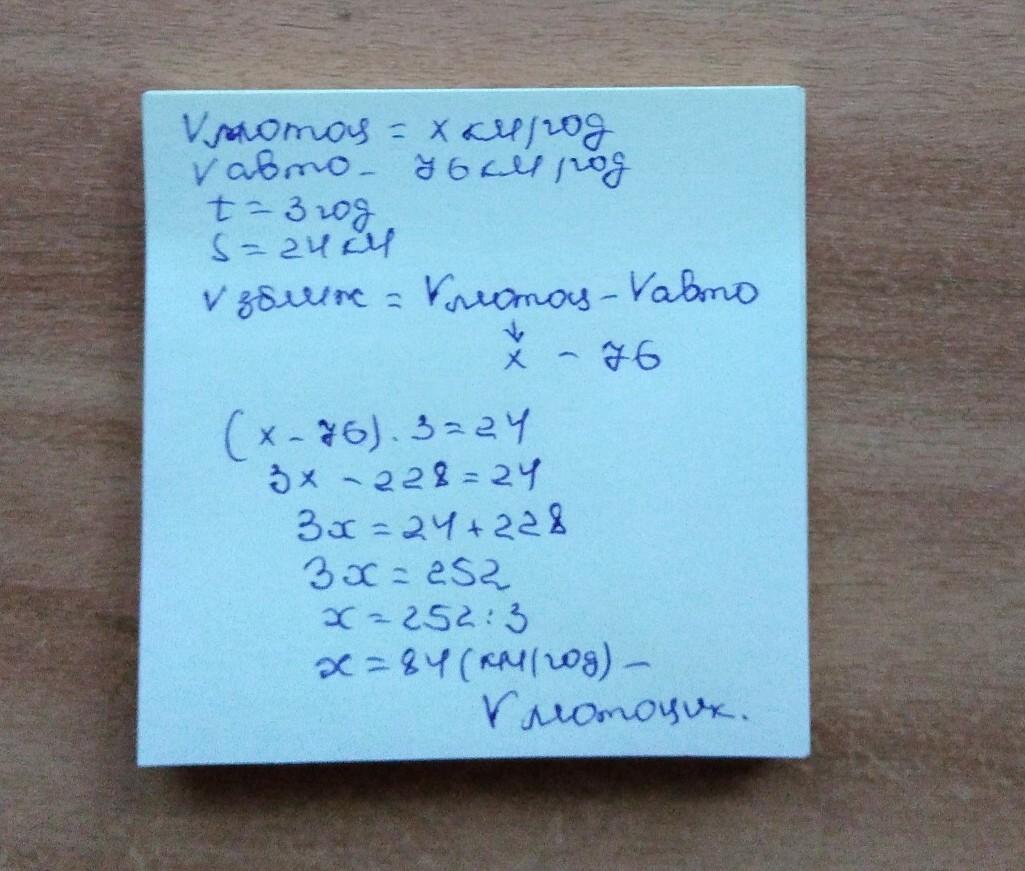 Vмотоц = x км/год
Vавто - 76 км/год
t = 3 год
S = 24 км
V зближ = Vмотоц - Vавто
↓
x - 76
(x - 76) · 3 = 24
3x - 228 = 24
3x = 24 + 228
3x = 252
x = 252 : 3
x = 84 (км/год) -
Vмотоцик.